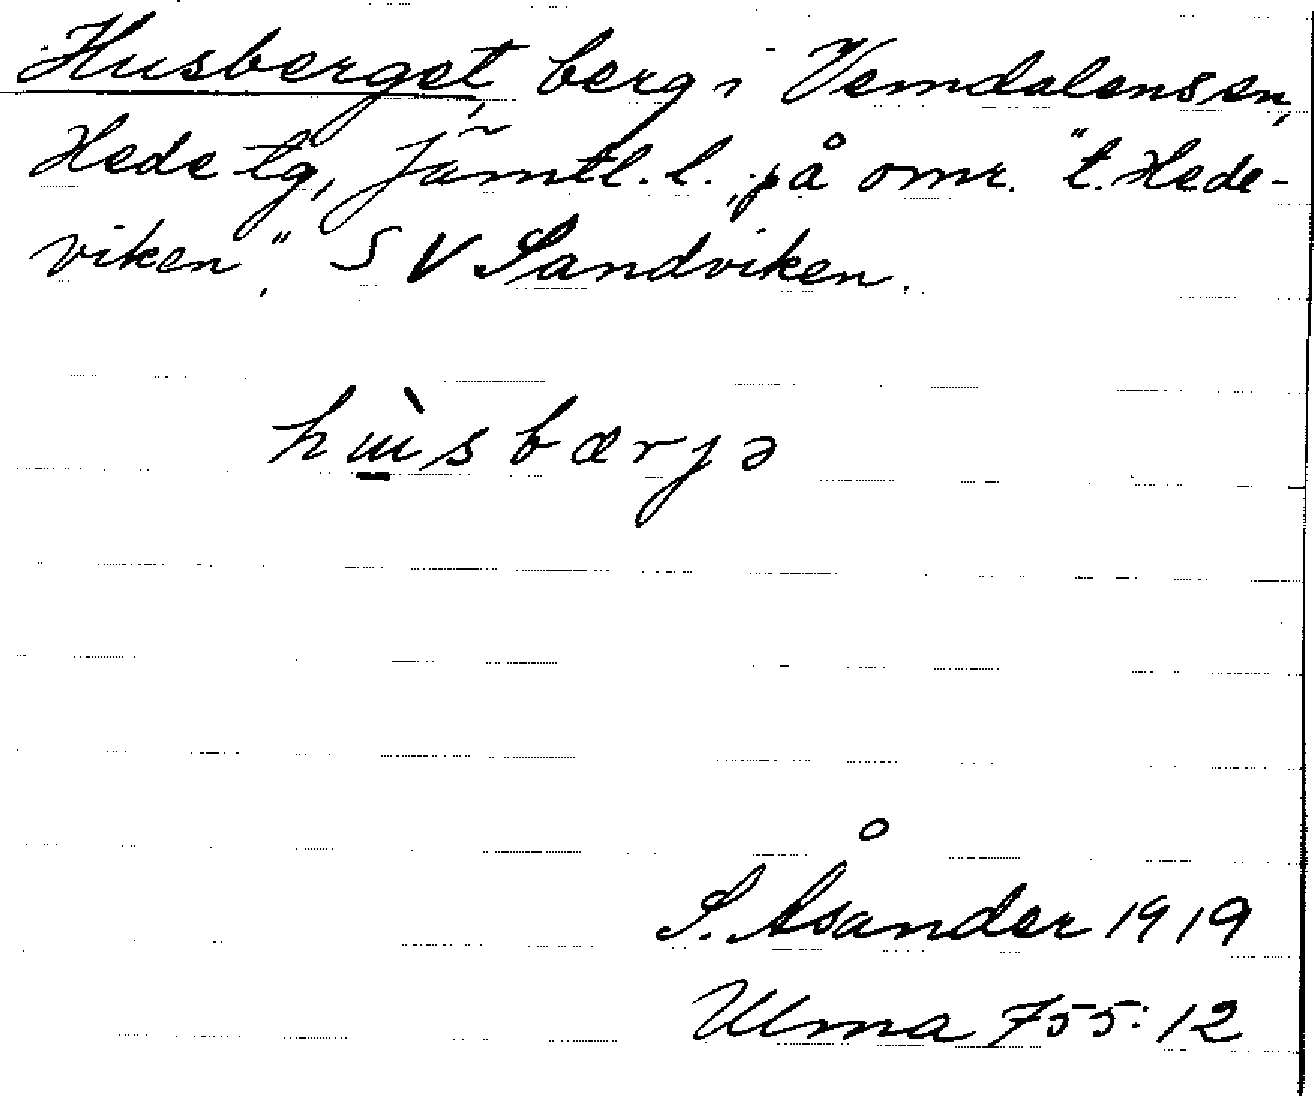 Husberget, berg i Vemdalens sn,
Hede tg, Jämtl. l., på omr. "t. Hede-
viken", SV Sandviken.
hɯ̱̀sbærjə
S. Åsander 1919
Ulma 755:12